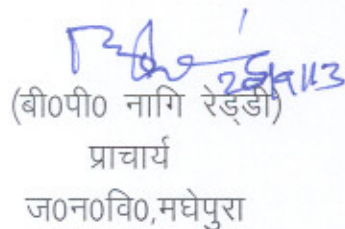 26/9/13
(बी0पी0 नागि रेड्डी)
प्राचार्य
ज0न0वि0,मघेपुरा